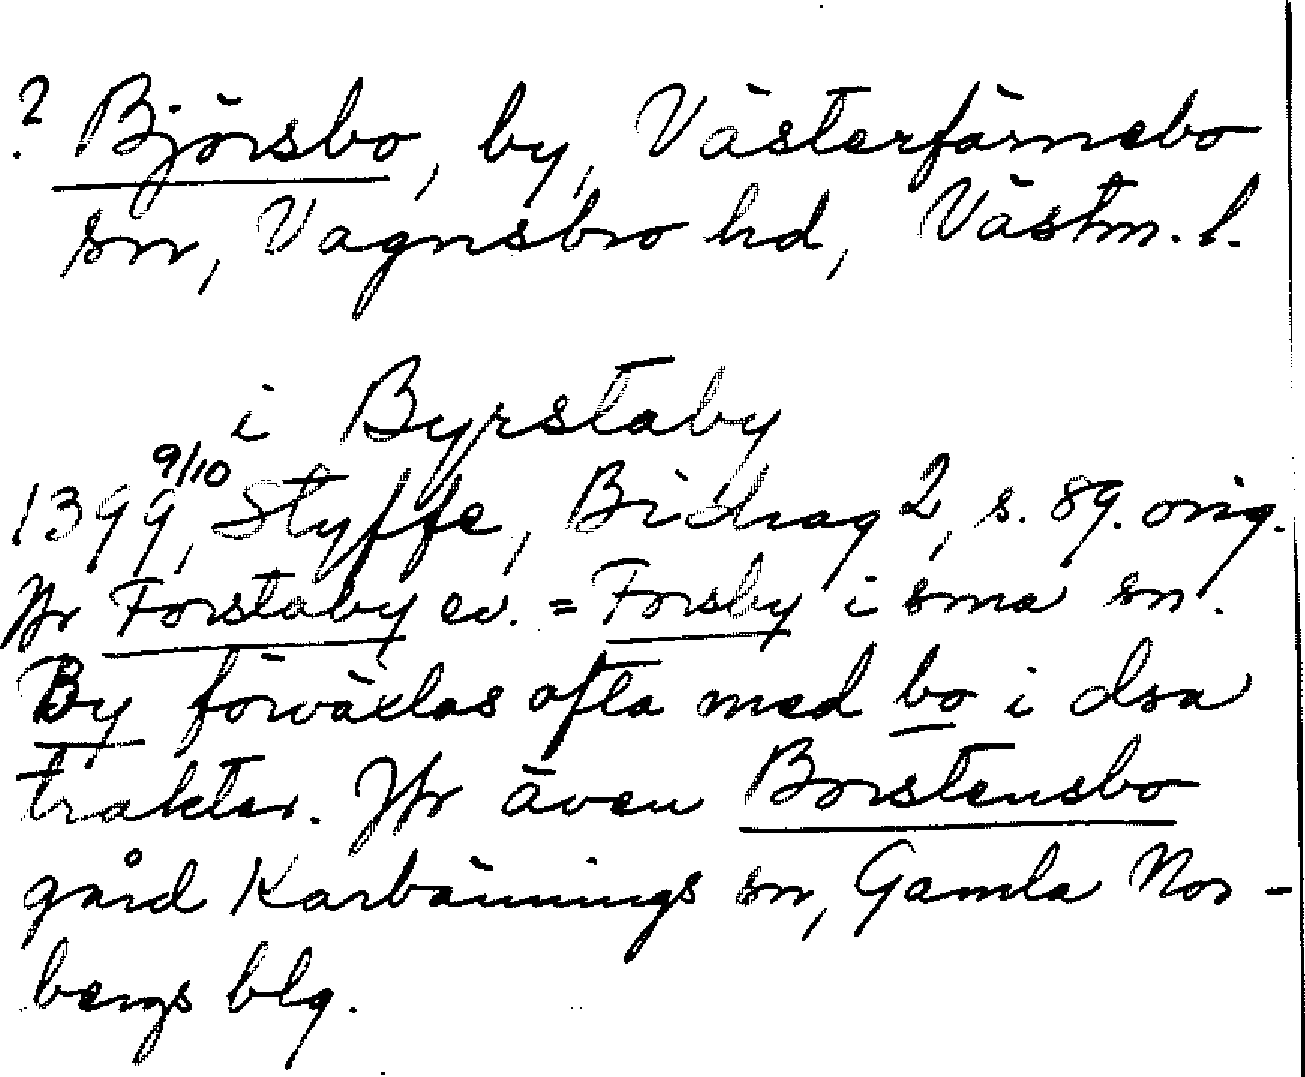 ? Björsbo, by, Västerfärnebo
sn, Vagnsbro hd, Västm. l.
i Byrstaby
1399 9/10, Styffe, Bidrag 2, s. 89. orig.
Jfr Forstaby ev. = Forsby i sma sn.
By förväxlas ofta med bo i dsa
trakter. Jfr även Borstensbo
gård Karbennings sn, Gamla Nor-
bergs blg.